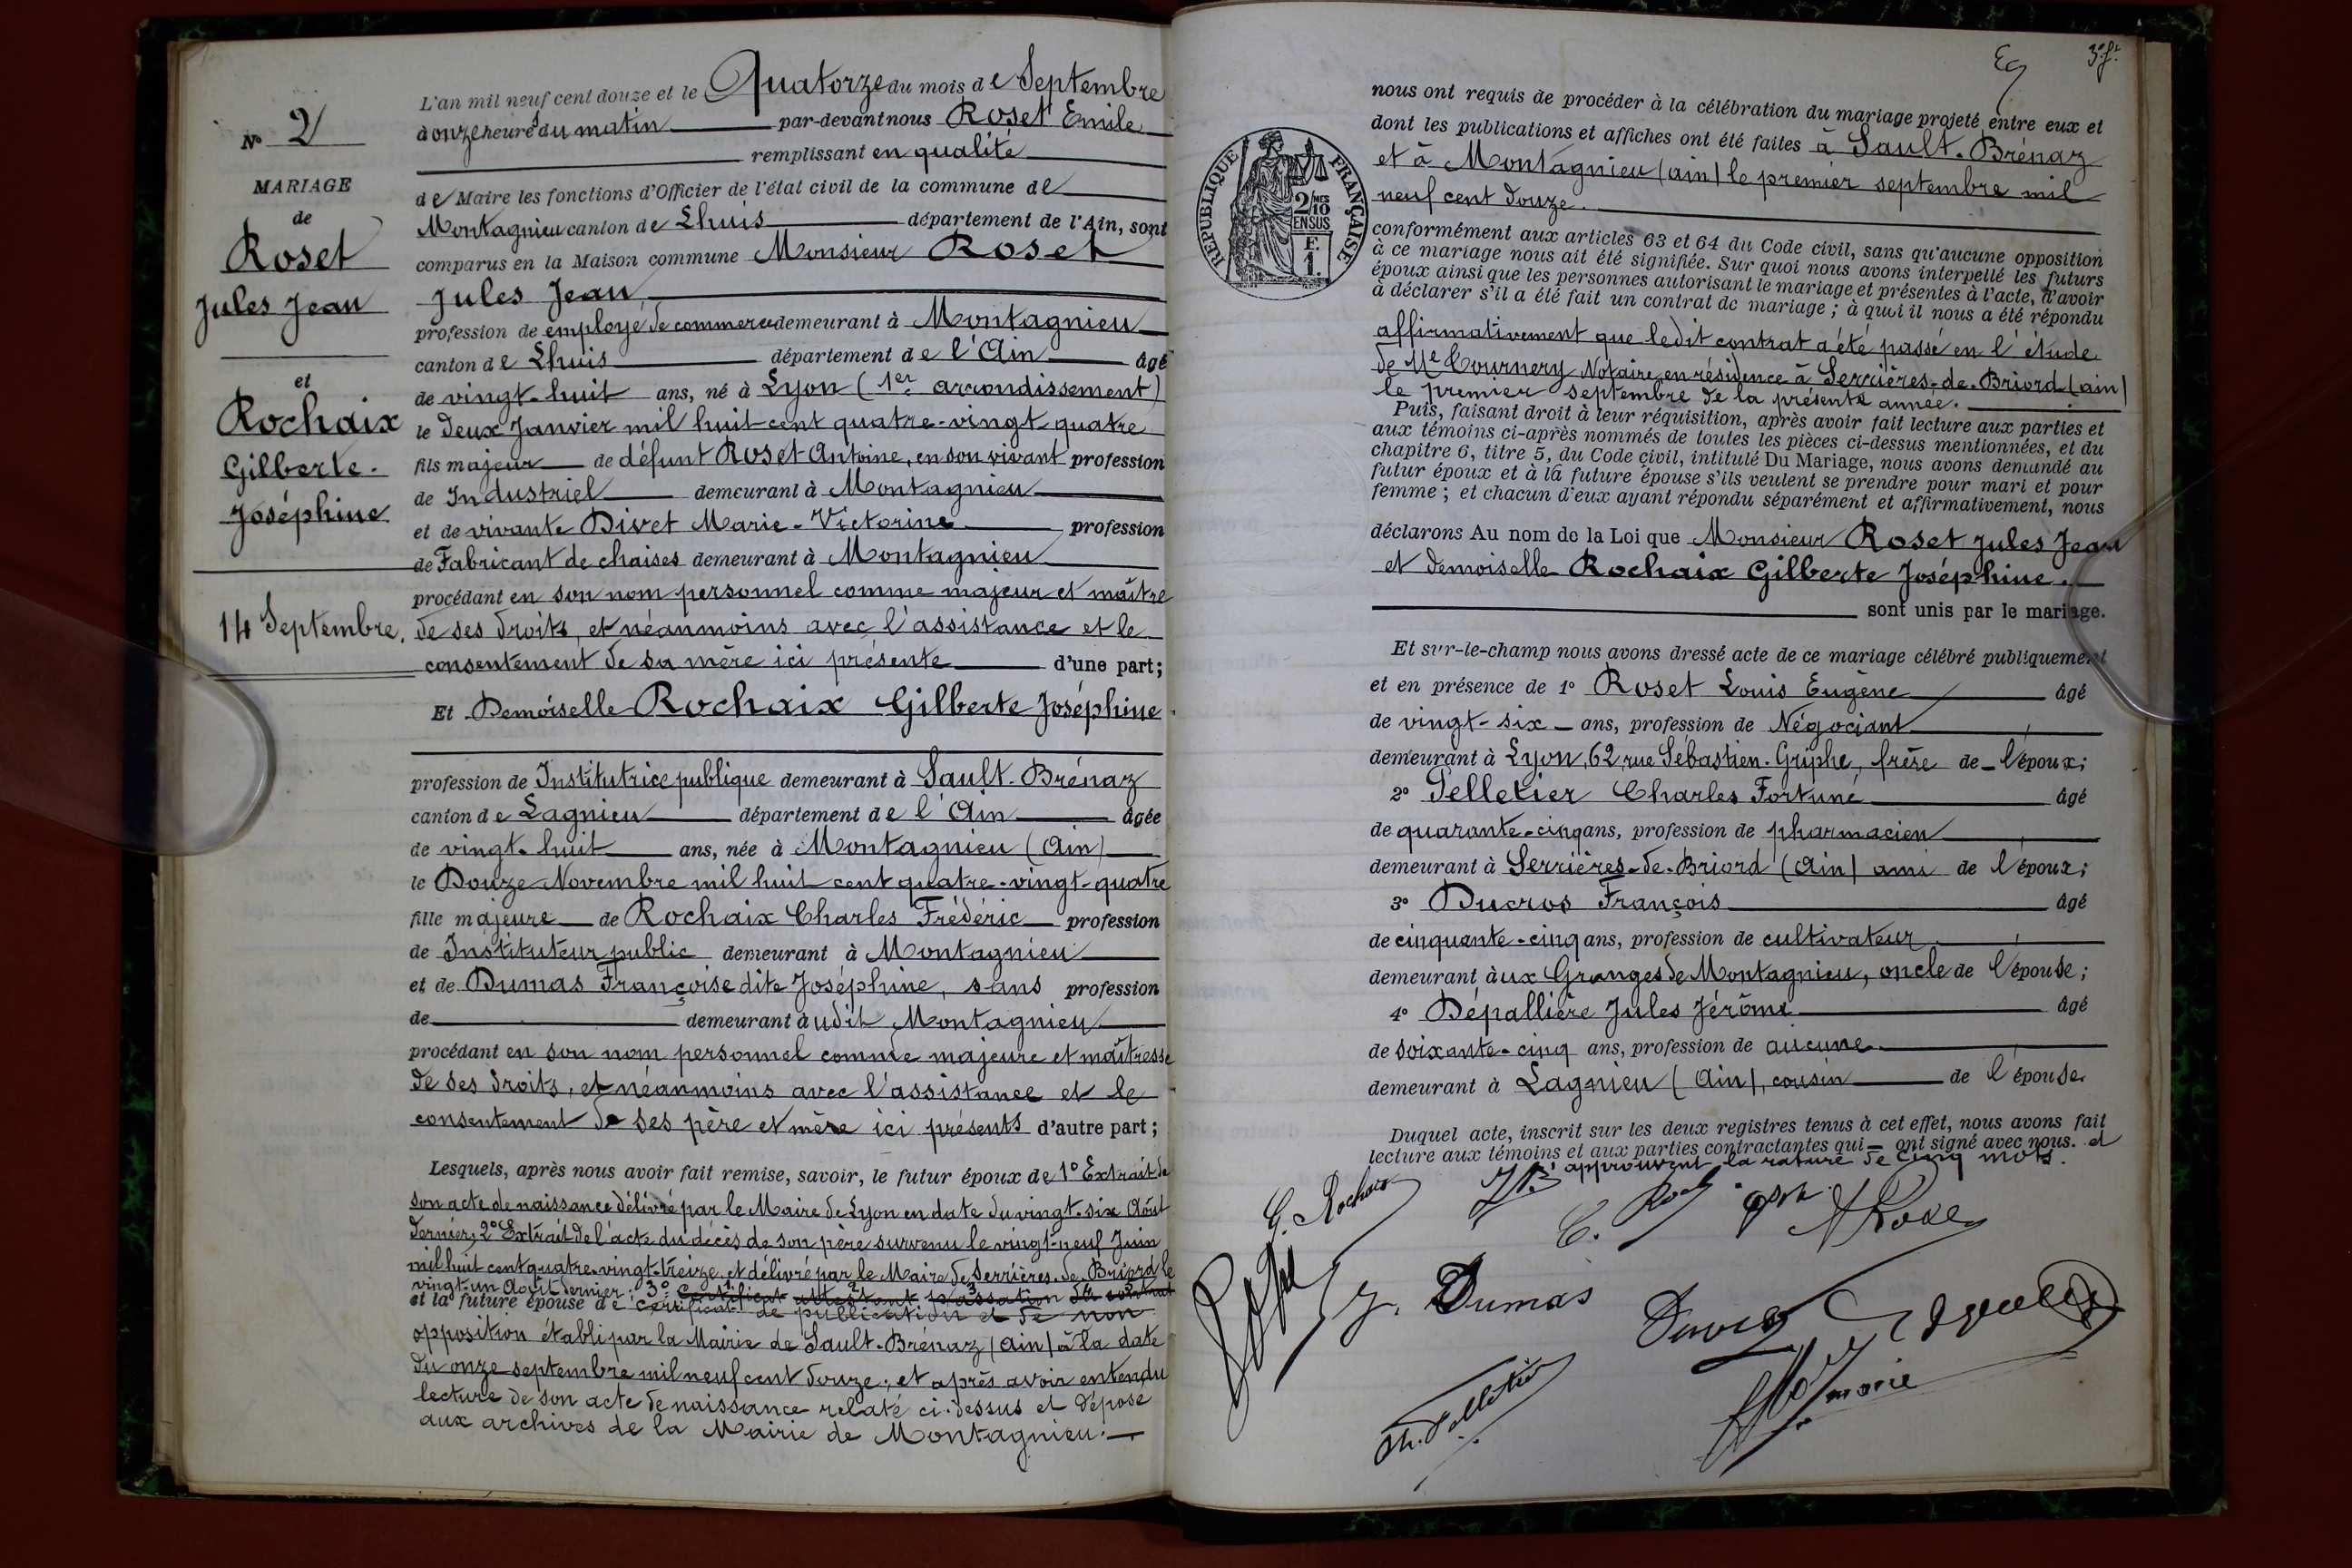 N° 2
MARIAGE
de
Roset
Jules Jean
et
Rochaix
Gilberte
Joséphine
14 Septembre.
L'an mil neuf cent douze et le Quatorze du mois de Septembre
à onze heures du matin par-devant nous Roset Emile
remplissant en qualité
de Maire les fonctions d'Officier de l'état civil de la commune de
Montagnieu canton de Lhuis département de l'Ain, sont
comparus en la Maison commune Monsieur Roset
Jules Jean
profession de employé de commerce demeurant à Montagnieu
canton de Lhuis département de l'Ain âgé
de vingt-huit ans, né à Lyon (1er arrondissement)
le deux Janvier mil huit cent quatre-vingt-quatre
fils majeur de défunt Roset Antoine, en son vivant profession
de Industriel demeurant à Montagnieu
et de vivante Divet Marie-Victorine profession
de Fabricant de chaises demeurant à Montagnieu
procédant en son nom personnel comme majeur et maître
de ses droits, et néanmoins avec l'assistance et le
consentement de sa mère ici présente d'une part;
Et Demoiselle Rochaix Gilberte Joséphine
profession de Institutrice publique demeurant à Sault-Brénaz
canton de Lagnieu département de l'Ain âgée
de vingt-huit ans, née à Montagnieu (Ain)
le Douze Novembre mil huit cent quatre-vingt-quatre
fille majeure de Rochaix Charles Frédéric profession
de Instituteur public demeurant à Montagnieu
et de Dumas Françoise dite Joséphine, sans profession
de demeurant audit Montagnieu
procédant en son nom personnel comme majeure et maîtresse
de ses droits, et néanmoins avec l'assistance et le
consentement de ses père et mère ici présents d'autre part;
Lesquels, après nous avoir fait remise, savoir, le futur époux de 1° Extrait de
son acte de naissance délivré par le Maire de Lyon en date du vingt-six Août
dernier, 2° Extrait de l'acte du décès de son père survenu le vingt-neuf Juin
mil huit cent quatre-vingt-treize, et délivré par le Maire de Serrières-de-Briord le
vingt-un Août dernier; 3° Certificat attestant passation du contrat
et la future épouse de certificat de publication et de non
opposition établi par la Mairie de Sault-Brénaz (Ain) à la date
du onze septembre mil neuf cent douze, et après avoir entendu
lecture de son acte de naissance relaté ci-dessus et déposé
aux archives de la Mairie de Montagnieu.
3° f°
RÉPUBLIQUE FRANÇAISE
2/10 MES
EN SUS
F.
1.
nous ont requis de procéder à la célébration du mariage projeté entre eux et
dont les publications et affiches ont été faites à Sault-Brénaz
et à Montagnieu (ain) le premier septembre mil
neuf cent douze.
conformément aux articles 63 et 64 du Code civil, sans qu'aucune opposition
à ce mariage nous ait été signifiée. Sur quoi nous avons interpellé les futurs
époux ainsi que les personnes autorisant le mariage et présentes à l'acte, d'avoir
à déclarer s'il a été fait un contrat de mariage; à quoi il nous a été répondu
affirmativement que ledit contrat a été passé en l'étude
de Me Cournery Notaire, en résidence à Serrières-de-Briord (ain)
le premier septembre de la présente année.
Puis, faisant droit à leur réquisition, après avoir fait lecture aux parties et
aux témoins ci-après nommés de toutes les pièces ci-dessus mentionnées, et du
chapitre 6, titre 5, du Code civil, intitulé Du Mariage, nous avons demandé au
futur époux et à la future épouse s'ils veulent se prendre pour mari et pour
femme; et chacun d'eux ayant répondu séparément et affirmativement, nous
déclarons Au nom de la Loi que Monsieur Roset Jules Jean
et demoiselle Rochaix Gilberte Joséphine.
sont unis par le mariage.
Et sur-le-champ nous avons dressé acte de ce mariage célébré publiquement
et en présence de 1° Roset Louis Eugène âgé
de vingt-six ans, profession de Négociant
demeurant à Lyon, 62, rue Sébastien-Griphe, frère de l'époux;
2° Pelletier Charles Fortuné âgé
de quarante-cinq ans, profession de pharmacien
demeurant à Serrières-de-Briord (Ain) ami de l'époux;
3° Ducros François âgé
de cinquante-cinq ans, profession de cultivateur
demeurant aux Granges de Montagnieu, oncle de l'épouse;
4° Dépallière Jules Jérôme âgé
de soixante-cinq ans, profession de aucune
demeurant à Lagnieu (Ain), cousin de l'épouse
Duquel acte, inscrit sur les deux registres tenus à cet effet, nous avons fait
lecture aux témoins et aux parties contractantes qui ont signé avec nous. et
approuvent la rature de cinq mots.
G. Rochaix
J. Dumas
Ch. Pelletier